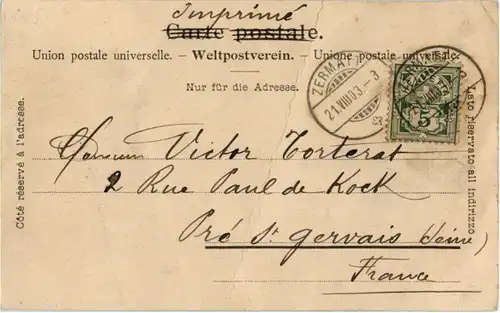 Imprimé
Carte postale.
Union postale universelle. – Weltpostverein. – Unione postale universale.
Nur für die Adresse.
ZERMATT
21.VIII03.–3
5
Côté réservé à l'adresse.
Lato riservato all indirizzo
Monsieur Victor Torterat
2 Rue Paul de Kock
Pré St gervais (Seine)
France